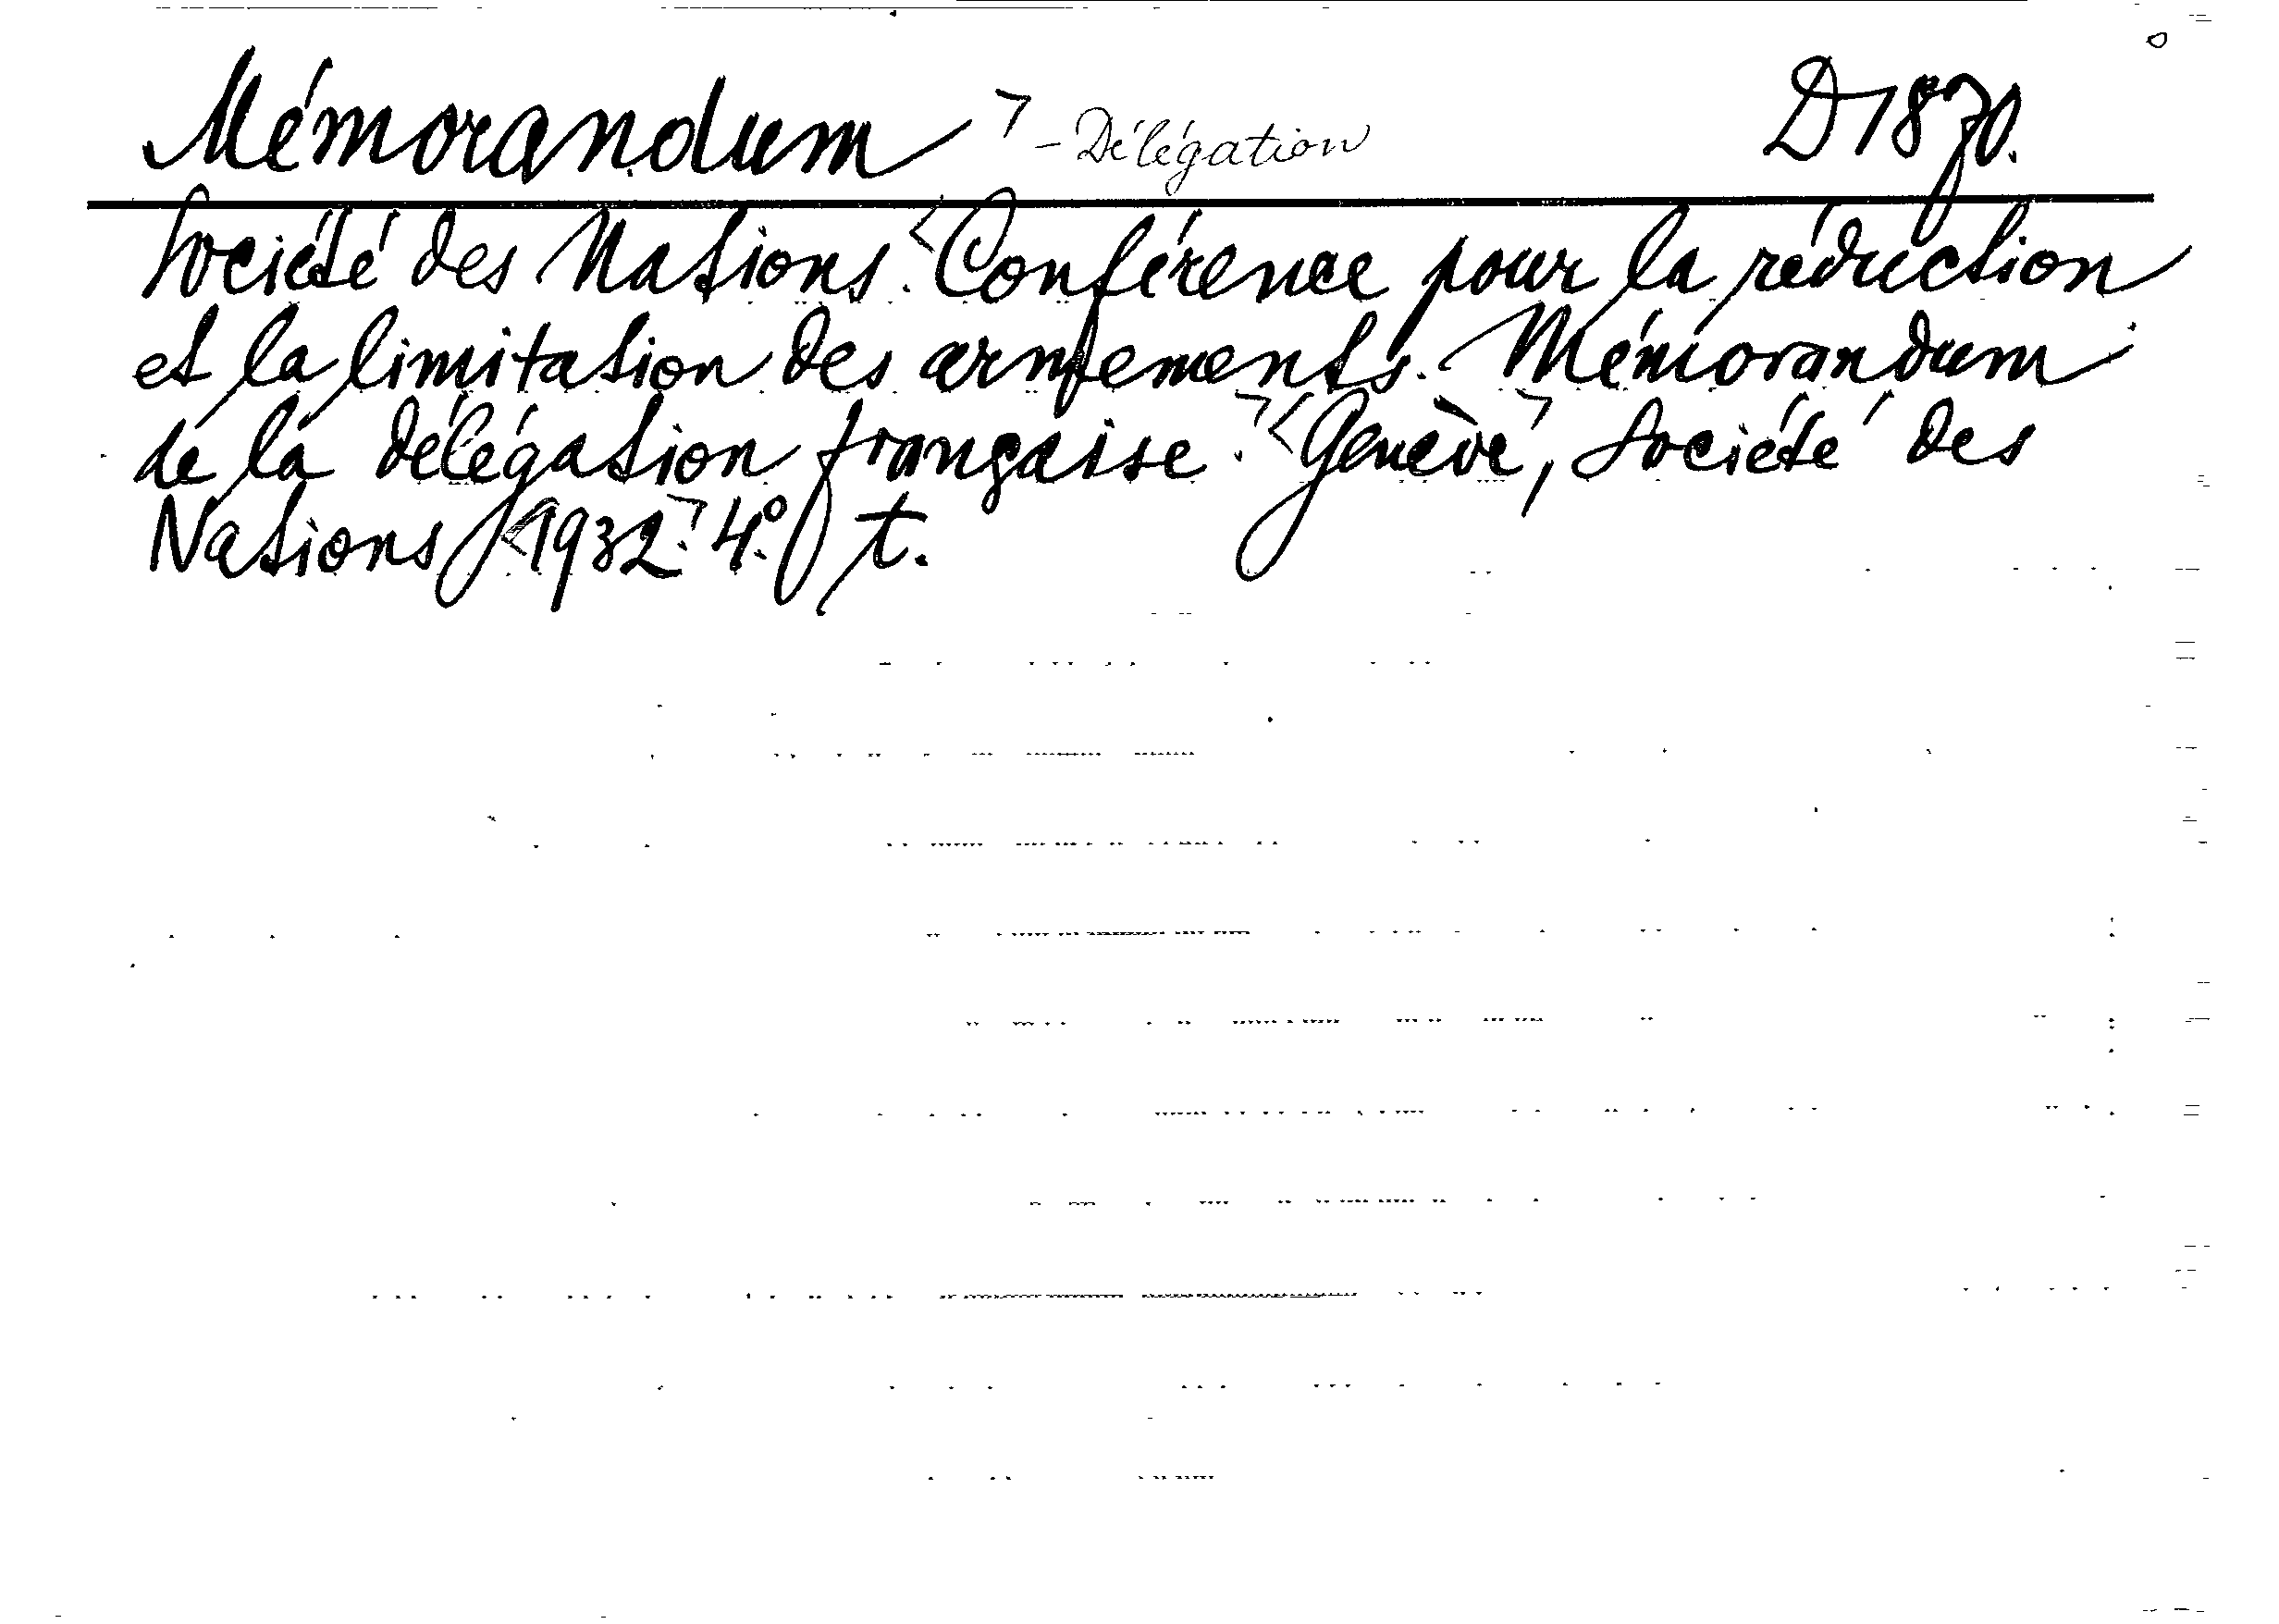 Mémorandum - Délégation D1870.
Société des Nations. Conférence pour la réduction
et la limitation des armements. Mémorandum
de la délégation française. Genève, Société des
Nations 1932. 4º. t.